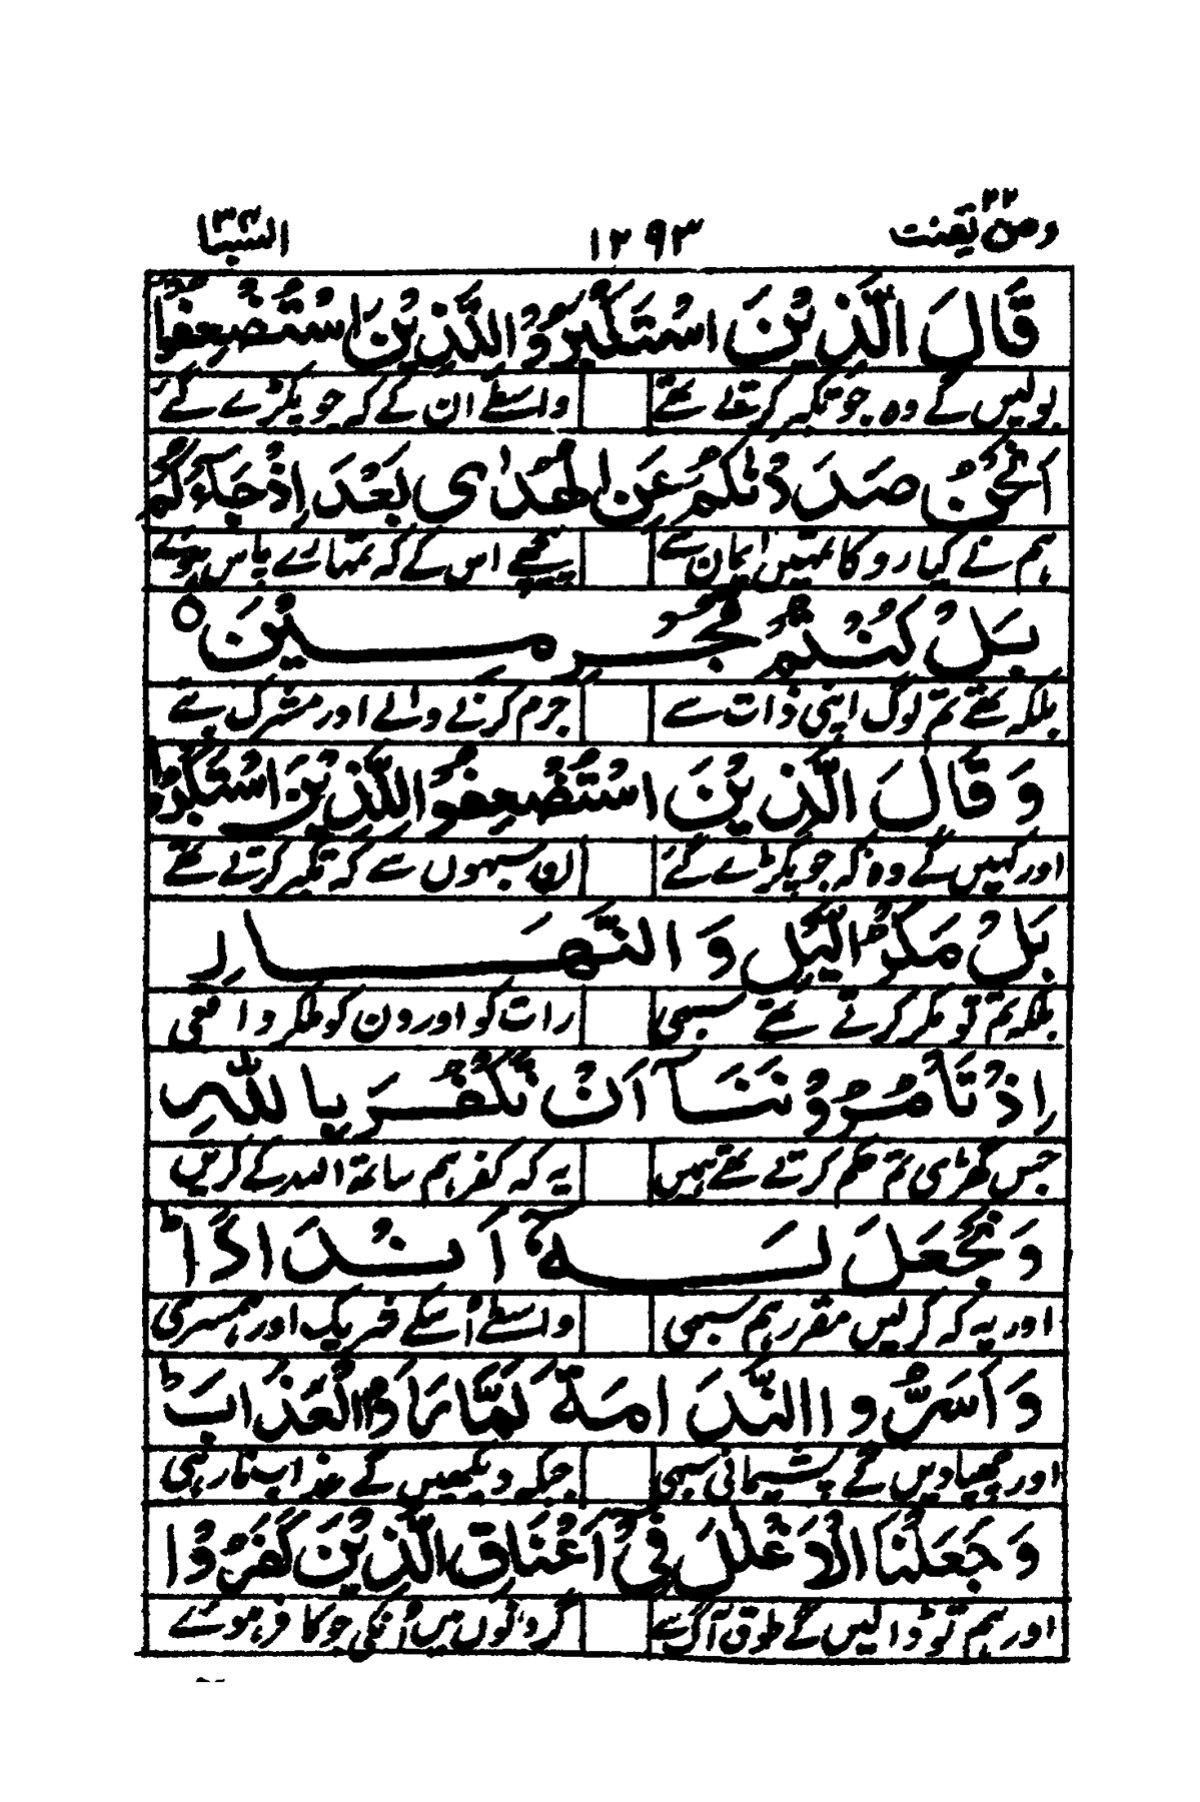 ومن یقنت ۲۲ ۱۲۹۳ السبا ۳۴
قَالَ الَّذِيْنَ اسْتَكْبَرُوْا لِلَّذِيْنَ اسْتُضْعِفُوْٓا
بولیں گے وہ جو تکبر کرتے تھے واسطے ان کے کہ جو پکڑے گئے
اَنَحْنُ صَدَدْنٰكُمْ عَنِ الْهُدٰى بَعْدَ اِذْ جَآءَكُمْ
ہم نے کیا روکا تمہیں ایمان سے پیچھے اس کے کہ تمہارے پاس ہوئے
بَلْ كُنْتُمْ مُّجْرِمِيْنَ ○
بلکہ تھے تم لوگ اپنی ذات سے جرم کرنے والے اور مشرک بے
وَ قَالَ الَّذِيْنَ اسْتُضْعِفُوْا لِلَّذِيْنَ اسْتَكْبَرُوْا
اور کہیں گے وہ کہ جو پکڑے گئے ان سبہوں سے کہ تکبر کرتے تھے
بَلْ مَكْرُ الَّيْلِ وَ النَّهَارِ
بلکہ تم تو مکر کرتے تھے سبھی رات کو اور دن کو ملکر واقعی
اِذْ تَاْمُرُوْنَنَآ اَنْ نَّكْفُرَ بِاللّٰهِ
جس گھڑی تم حکم کرتے تھے ہمیں یہ کہ کفر ہم ساتھ اللہ کے کریں
وَ نَجْعَلَ لَهٗٓ اَنْدَادًا ؕ
اور یہ کہ کرلیں مقرر ہم سبھی واسطے اُسکے شریک اور ہمسری
وَ اَسَرُّوا النَّدَامَةَ لَمَّا رَاَوُا الْعَذَابَ ؕ
اور چھپادیں گے پشیمانی سبھی جبکہ دیکھیں گے عذاب نار ہی
وَ جَعَلْنَا الْاَغْلٰلَ فِيْٓ اَعْنَاقِ الَّذِيْنَ كَفَرُوْا
اور ہم تو ڈالیں گے طوق آگ سے گردنوں میں اُنکی جو کافر ہوئے